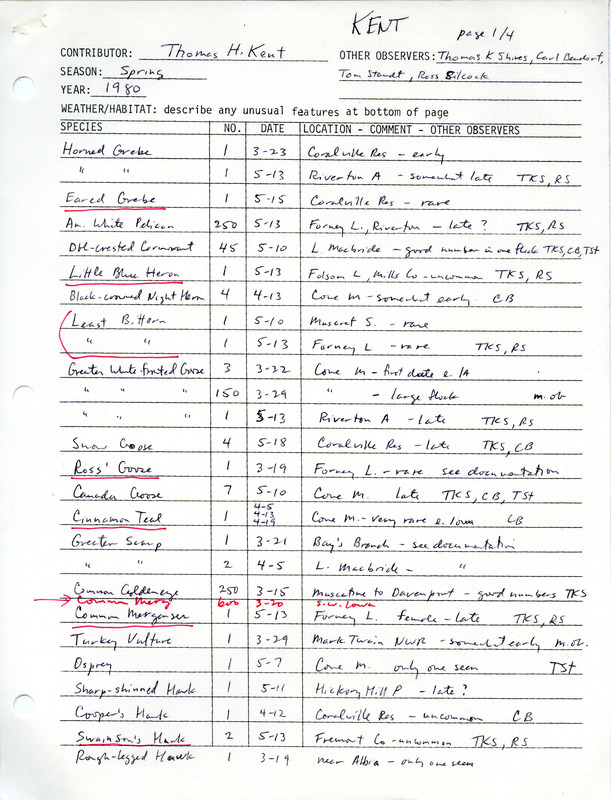 KENT page 1/4
CONTRIBUTOR: Thomas H. Kent OTHER OBSERVERS: Thomas K Shires, Carl Bendorf,
SEASON: Spring Tom Staudt, Ross Silcock
YEAR: 1980
WEATHER/HABITAT: describe any unusual features at bottom of page
SPECIES NO. DATE LOCATION - COMMENT - OTHER OBSERVERS
Horned Grebe 1 3-23 Coralville Res - early
" " 1 5-13 Riverton A - somewhat late TKS, RS
Eared Grebe 1 5-15 Coralville Res - rare
Am. White Pelican 250 5-13 Forney L., Riverton - late? TKS, RS
Dbl-crested Cormorant 45 5-10 L. Macbride - good number in one flock TKS, CB, TSt
Little Blue Heron 1 5-13 Folsom L, Mills Co - uncommon TKS, RS
Black-crowned Night Heron 4 4-13 Cone M - somewhat early CB
Least B. Hern 1 5-10 Muscat S. - rare
" " 1 5-13 Forney L - rare TKS, RS
Greater White fronted Goose 3 3-22 Cone M - first date e. IA
" " " 150 3-29 " - large flock m. ob
" " " 1 5-13 Riverton A - late TKS, RS
Snow Goose 4 5-18 Coralville Res - late TKS, CB
Ross' Goose 1 3-19 Forney L. - rare see documentation
Canada Goose 7 5-10 Cone M. late TKS, CB, TSt
Cinnamon Teal 1 4-5 4-13 4-19 Cone M. - very rare e. Iowa CB
Greater Scaup 1 3-21 Bay's Branch - see documentation
" " 2 4-5 L. Macbride - "
Common Goldeneye 250 3-15 Muscatine to Davenport - good numbers TKS
→ Common Merg 600 3-20 S.W. Iowa
Common Merganser 1 5-13 Forney L. female - late TKS, RS
Turkey Vulture 1 3-29 Mark Twain NWR - somewhat early m. ob.
Osprey 1 5-7 Cone M. only one seen TSt
Sharp-shinned Hawk 1 5-11 Hickory Hill P - late?
Cooper's Hawk 1 4-12 Coralville Res - uncommon CB
Swainson's Hawk 2 5-13 Fremont Co - uncommon TKS, RS
Rough-legged Hawk 1 3-19 near Albia - only one seen